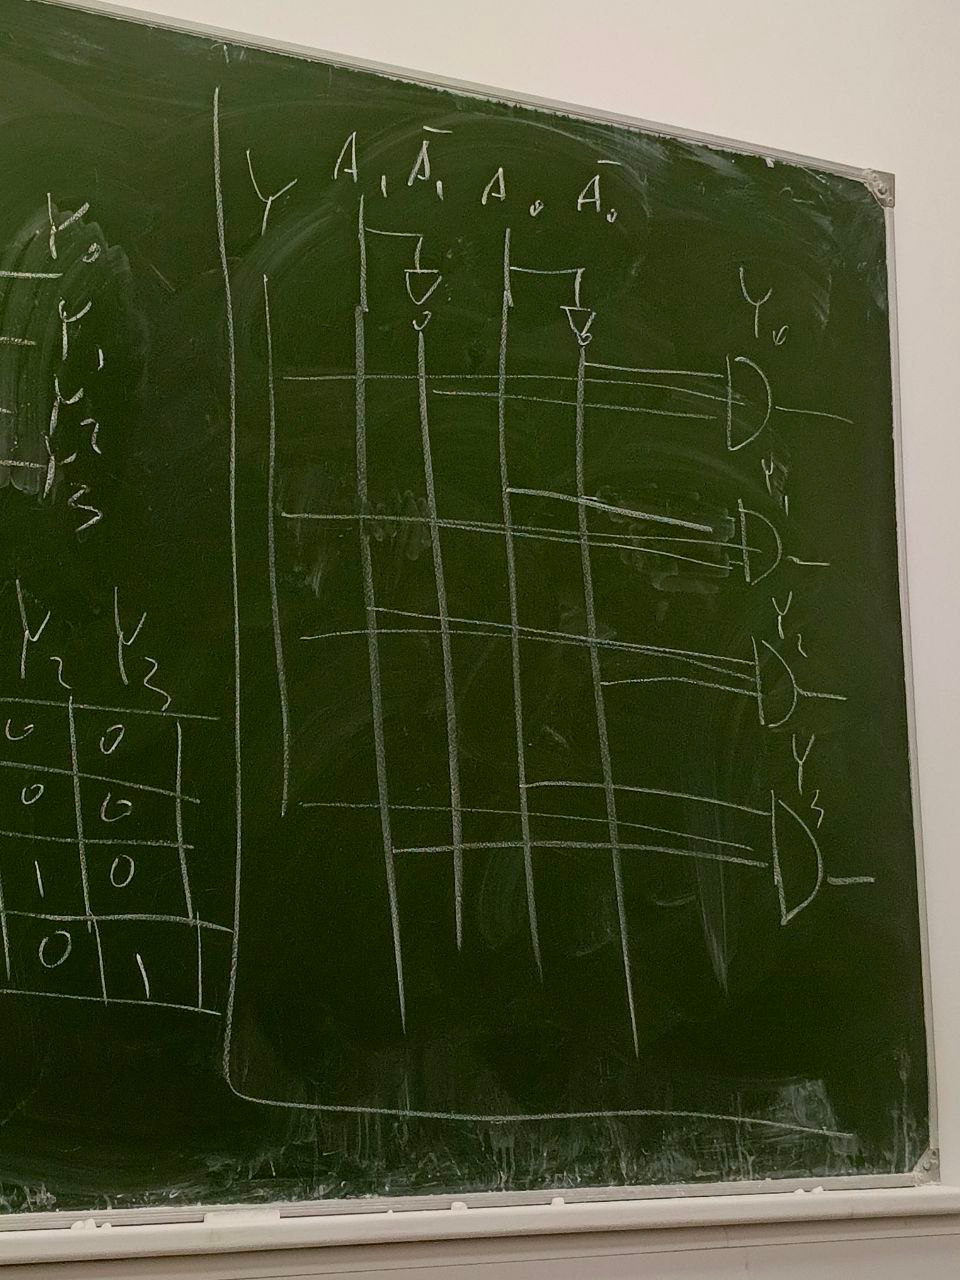 Y₀
Y₁
Y₂
Y₃
Y₂ Y₃
0 0
0 0
1 0
0 1
Y A₁ Ā₁ A₀ Ā₀
Y₀
Y₁
Y₂
Y₃